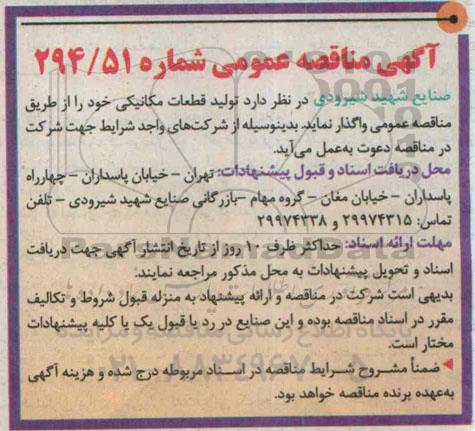 آگهی مناقصه عمومی شماره ۲۹۴/۵۱
صنایع شهید شیرودی در نظر دارد تولید قطعات مکانیکی خود را از طریق
مناقصه عمومی واگذار نماید. بدینوسیله از شرکت‌های واجد شرایط جهت شرکت
در مناقصه دعوت به‌عمل می‌آید.
محل دریافت اسناد و قبول پیشنهادات: تهران – خیابان پاسداران – چهارراه
پاسداران – خیابان مغان – گروه مهام –بازرگانی صنایع شهید شیرودی – تلفن
تماس: ۲۹۹۷۴۳۱۵ و ۲۹۹۷۴۳۳۸
مهلت ارائه اسناد: حداکثر ظرف ۱۰ روز از تاریخ انتشار آگهی جهت دریافت
اسناد و تحویل پیشنهادات به محل مذکور مراجعه نمایند.
بدیهی است شرکت در مناقصه و ارائه پیشنهاد به منزله قبول شروط و تکالیف
مقرر در اسناد مناقصه بوده و این صنایع در رد یا قبول یک یا کلیه پیشنهادات
مختار است.
ضمناً مشروح شرایط مناقصه در اسناد مربوطه درج شده و هزینه آگهی
به‌عهده برنده مناقصه خواهد بود.